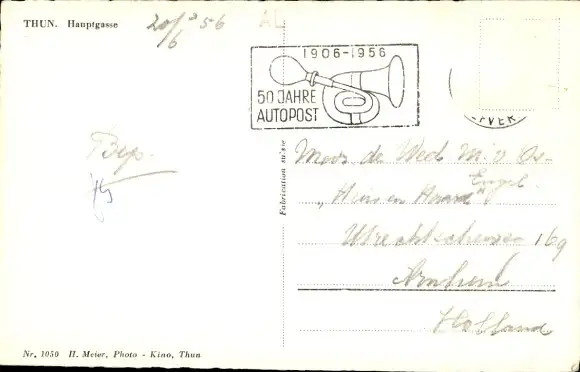 THUN. Hauptgasse
20/6 56
AL
1906-1956
50 JAHRE
AUTOPOST
Bep.
Fabrication suisse
Mevr. de Wed. M. v. Os-
Engel
"Huis en Haard"
Utrechtscheweg 169
Arnhem
Holland
Nr. 1050 H. Meier, Photo - Kino, Thun